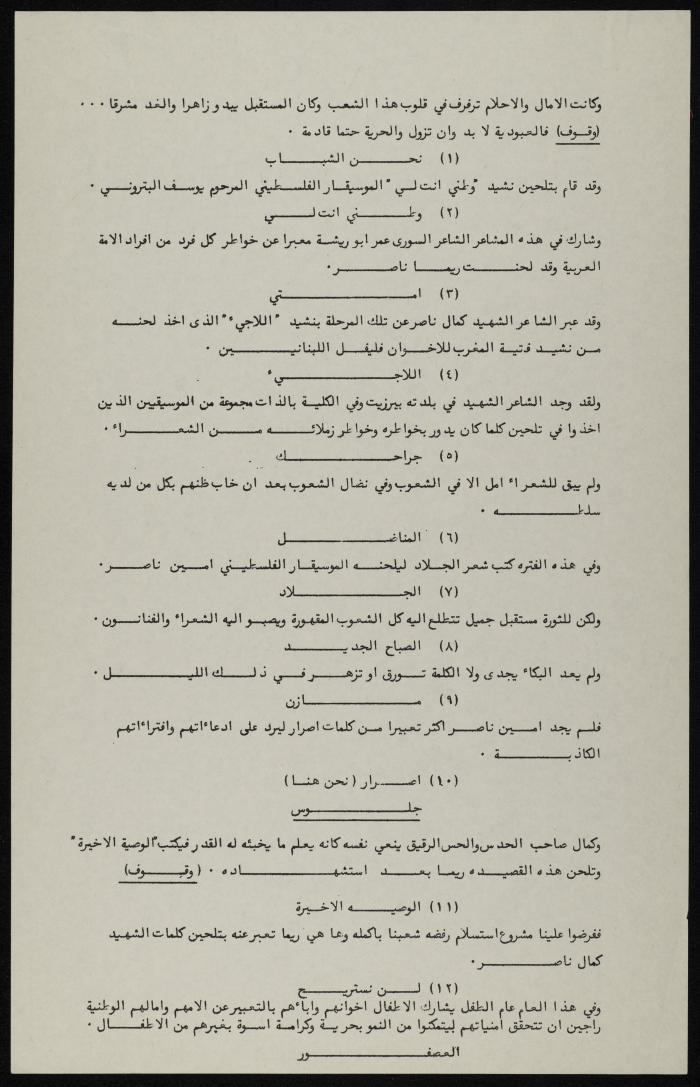 وكانت الامال والاحلام ترفرف في قلوب هذا الشعب وكان المستقبل يبدو زاهرا والغد مشرقا ...
(وقوف) فالعبودية لا بد وان تزول والحرية حتما قادمة .
(١) نحن الشباب
وقد قام بتلحين نشيد "وطني انت لي" الموسيقار الفلسطيني المرحوم يوسف البتروني .
(٢) وطني انت لي
وشارك في هذه المشاعر الشاعر السورى عمر ابو ريشة معبرا عن خواطر كل فرد من افراد الامة
العربية وقد لحنت ريما ناصر .
(٣) امتي
وقد عبر الشاعر الشهيد كمال ناصر عن تلك المرحلة بنشيد "اللاجيء" الذى اخذ لحنه
من نشيد فتية المغرب للاخوان فليفل اللبنانيين .
(٤) اللاجيء
ولقد وجد الشاعر الشهيد في بلدته بيرزيت وفي الكلية بالذات مجموعة من الموسيقيين الذين
اخذوا في تلحين كلما كان يدور بخواطره وخواطر زملائه من الشعراء .
(٥) جراحك
ولم يبق للشعراء امل الا في الشعوب وفي نضال الشعوب بعد ان خاب ظنهم بكل من لديه
سلطه .
(٦) المناضل
وفي هذه الفتره كتب شعر الجلاد ليلحنه الموسيقار الفلسطيني امين ناصر .
(٧) الجلاد
ولكن للثورة مستقبل جميل تتطلع اليه كل الشعوب المقهورة ويصبو اليه الشعراء والفنانون .
(٨) الصباح الجديد
ولم يعد البكاء يجدى ولا الكلمة تورق او تزهر في ذلك الليل .
(٩) مازن
فلم يجد امين ناصر اكثر تعبيرا من كلمات اصرار ليرد على ادعاءاتهم وافتراءاتهم
الكاذبة .
(١٠) اصرار (نحن هنا)
جلوس
وكمال صاحب الحدس والحس الرقيق ينعي نفسه كانه يعلم ما يخبئه له القدر فيكتب "الوصية الاخيرة"
وتلحن هذه القصيده ريما بعد استشهاده . (وقوف)
(١١) الوصيه الاخيرة
ففرضوا علينا مشروع استسلام رفضه شعبنا باكمله وها هي ريما تعبر عنه بتلحين كلمات الشهيد
كمال ناصر .
(١٢) لن نستريح
وفي هذا العام عام الطفل يشارك الاطفال اخوانهم واباءهم بالتعبير عن الامهم وامالهم الوطنية
راجين ان تتحقق امنياتهم ليتمكنوا من النمو بحرية وكرامة اسوة بغيرهم من الاطفال .
العصفور